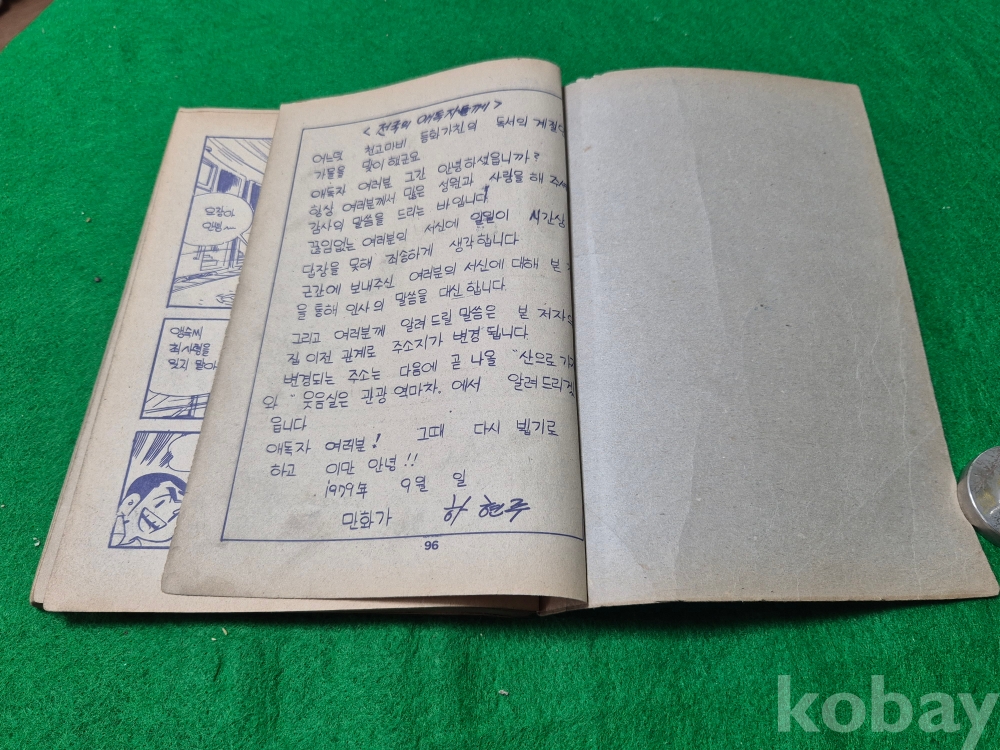 요강아
인병~
앵숙씨
최사형을
잊지 말아
< 전국의 애독자들께 >
어느덧 천고마비 등화가친의 독서의 계절
가을을 맞이했군요
애독자 여러분 그간 안녕하셨읍니까?
항상 여러분께서 많은 성원과 사랑을 해 주셔
감사의 말씀을 드리는 바입니다
끊임없는 여러분의 서신에 일일이 시간상
답장을 못해 죄송하게 생각합니다
근간에 보내주신 여러분의 서신에 대해 본
을 통해 인사의 말씀을 대신합니다.
그리고 여러분께 알려드릴 말씀은 본 저자의
집 이전 관계로 주소지가 변경 됩니다.
변경되는 주소는 다음에 곧 나올 "산으로
와 " 웃음실은 관광 역마차. 에서 알려드리겠
읍니다
애독자 여러분! 그때 다시 뵙기로
하고 이만 안녕!!
1979年 9월 일
만화가 하 현두
96
kobay